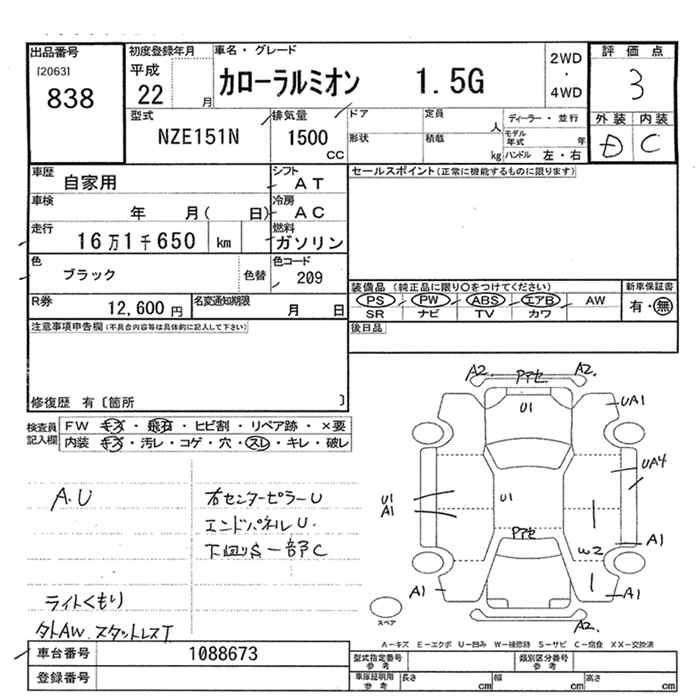 出品番号
[2063]
838
初度登録年月
平成
22 月
車名・グレード
カローラルミオン 1.5G
2WD
・
4WD
評価点
3
外装 内装
D C
型式
NZE151N
排気量
1500
CC
ドア
形状
定員
人
積載
kg
ディーラー・並行
モデル年式 年
ハンドル 左・右
車歴
自家用
シフト
AT
車検
年 月( 日)
冷房
AC
走行
16万1千650 km
燃料
ガソリン
色
ブラック
色替
色コード
209
R券
12,600 円
名変通知期限
月 日
セールスポイント(正常に機能するものに限ります)
装備品 (純正品に限り○をつけてください)
新車保証書
PS PW ABS エアB AW
SR ナビ TV カワ
有・無
後日品
注意事項申告欄(不具合内容等は具体的に記入して下さい)
修復歴 有〔箇所 〕
検査員
記入欄
FW キズ・飛石・ヒビ割・リペア跡・×要
内装 キズ・汚レ・コゲ・穴・スレ・キレ・破レ
A.U
右センターピラーU
エンドパネルU.
下回りS一部C
ライトくもり
外AW.スタットレスT
A2. A2.
Pアセ
U1
UA1
UA4
U1
A1
U1
Pアセ
W2
A1
A1
A1
A2.
スペア
A-キズ E-エクボ U-凹み W-補修跡 S-サビ C-腐食 XX-交換済
車台番号
1088673
登録番号
型式指定番号
参考
類別区分番号
参考
車庫証明用
参考
長さ cm
幅 cm
高さ cm